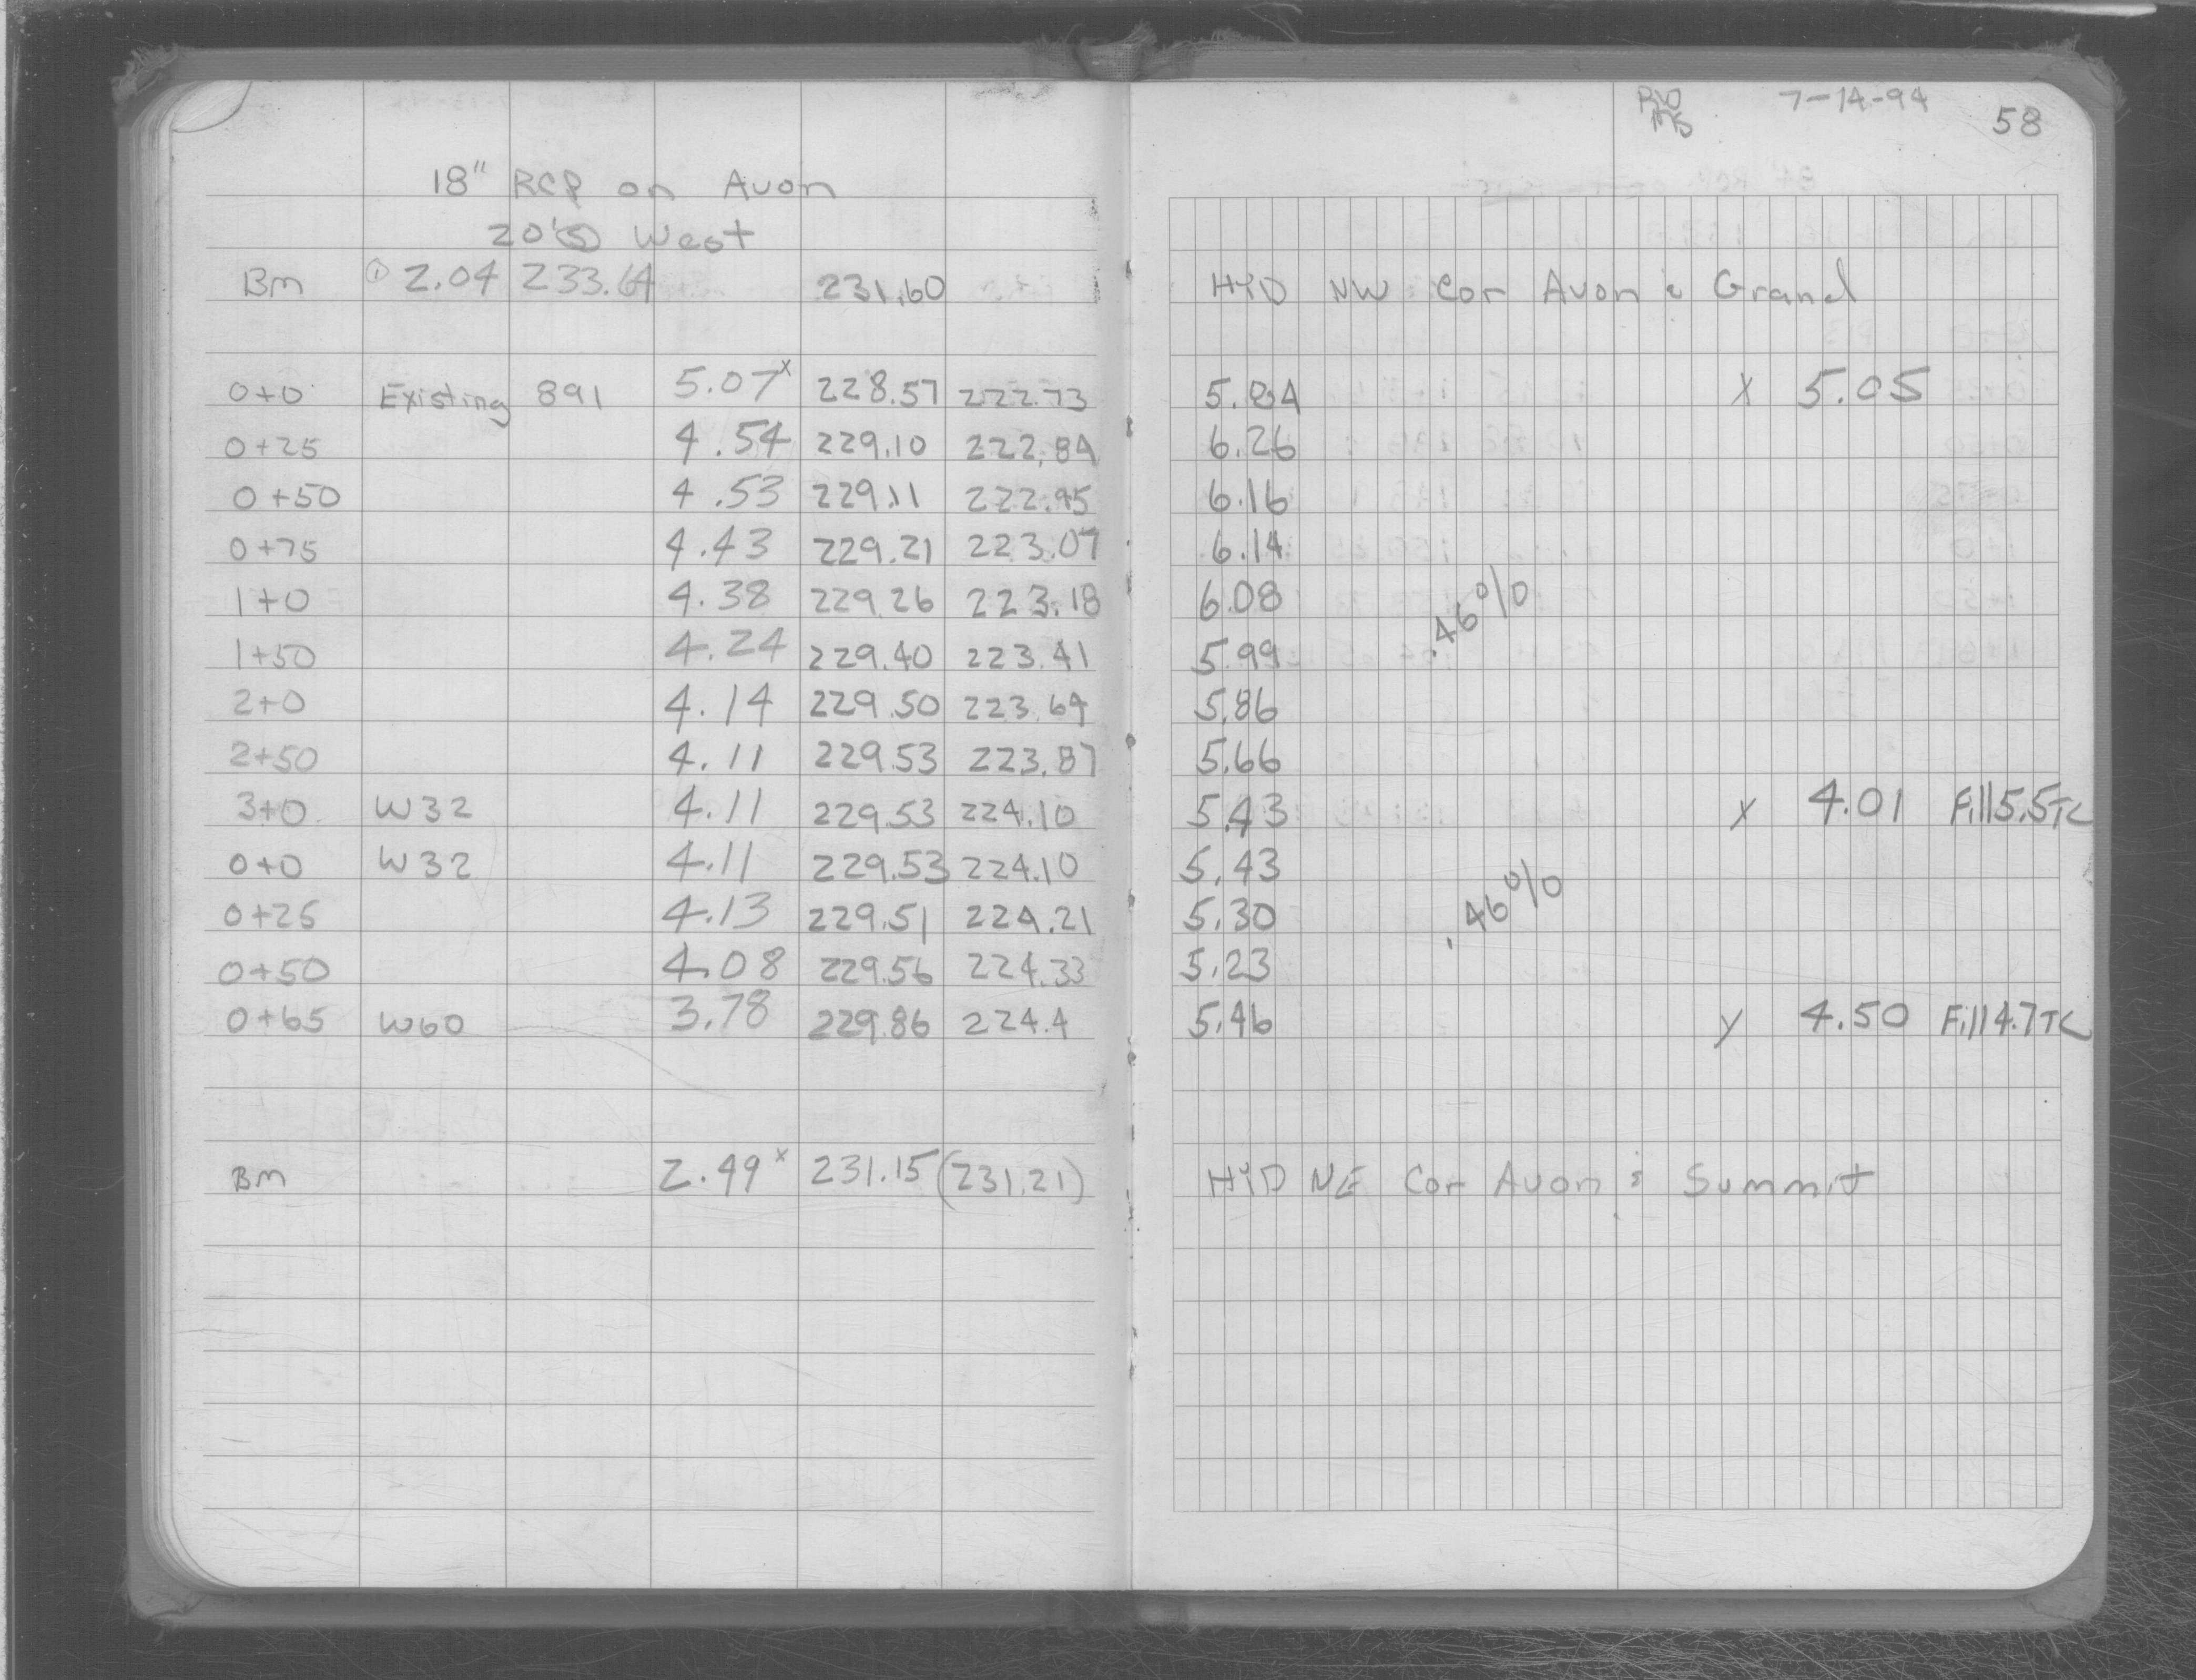 7-14-94 58
18" RCP on Avon
20' West
Bm ① 2.04 233.64 231.60 HYD NW Cor Avon & Grand
0+0 Existing 891 5.07x 228.57 222.73 5.84 x 5.05
0+25 4.54 229.10 222.84 6.26
0+50 4.53 229.11 222.95 6.16
0+75 4.43 229.21 223.07 6.14
1+0 4.38 229.26 223.18 6.08
.46%
1+50 4.24 229.40 223.41 5.99
2+0 4.14 229.50 223.64 5.86
2+50 4.11 229.53 223.87 5.66
3+0 W32 4.11 229.53 224.10 5.43 x 4.01 Fill 5.5 TC
0+0 W32 4.11 229.53 224.10 5.43
0+25 4.13 229.51 224.21 5.30 .46%
0+50 4.08 229.56 224.33 5.23
0+65 W60 3.78 229.86 224.4 5.46 y 4.50 Fill 4.7 TC
Bm 2.49x 231.15 (231.21) HYD NE Cor Avon & Summit